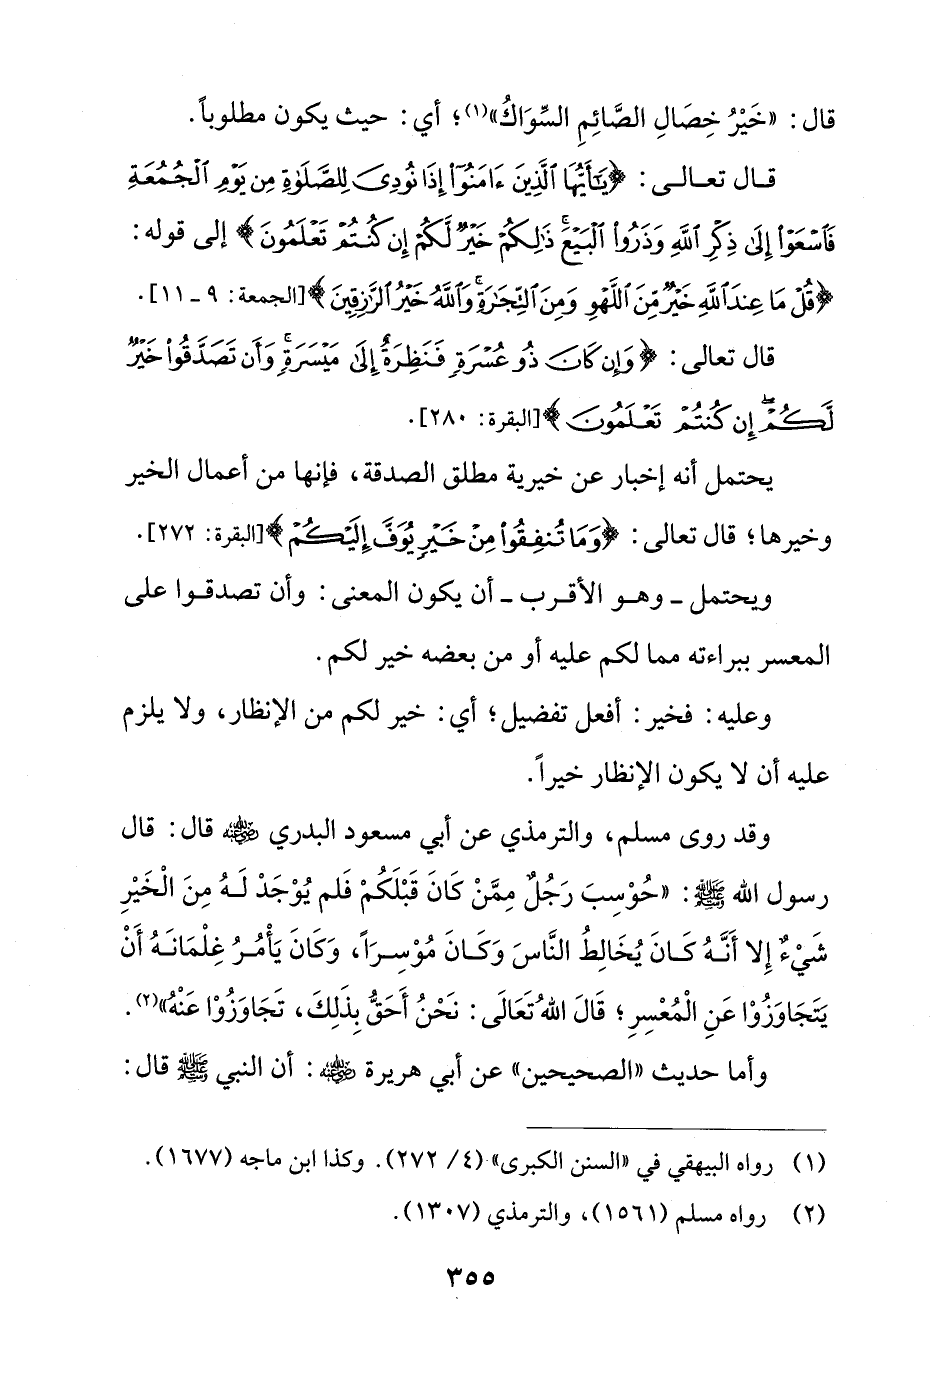 قال: «خَيْرُ خِصَالِ الصَّائِمِ السِّوَاكُ»(١)؛ أي: حيث يكون مطلوباً.
قال تعالى: ﴿يَٰٓأَيُّهَا ٱلَّذِينَ ءَامَنُوٓا۟ إِذَا نُودِىَ لِلصَّلَوٰةِ مِن يَوْمِ ٱلْجُمُعَةِ
فَٱسْعَوْا۟ إِلَىٰ ذِكْرِ ٱللَّهِ وَذَرُوا۟ ٱلْبَيْعَ ۚ ذَٰلِكُمْ خَيْرٌ لَّكُمْ إِن كُنتُمْ تَعْلَمُونَ﴾ إلى قوله:
﴿قُلْ مَا عِندَ ٱللَّهِ خَيْرٌ مِّنَ ٱللَّهْوِ وَمِنَ ٱلتِّجَٰرَةِ ۚ وَٱللَّهُ خَيْرُ ٱلرَّٰزِقِينَ﴾ [الجمعة: ٩ ـ ١١].
قال تعالى: ﴿وَإِن كَانَ ذُو عُسْرَةٍ فَنَظِرَةٌ إِلَىٰ مَيْسَرَةٍ ۚ وَأَن تَصَدَّقُوا۟ خَيْرٌ
لَّكُمْ ۖ إِن كُنتُمْ تَعْلَمُونَ﴾ [البقرة: ٢٨٠].
يحتمل أنه إخبار عن خيرية مطلق الصدقة، فإنها من أعمال الخير
وخيرها؛ قال تعالى: ﴿وَمَا تُنفِقُوا۟ مِنْ خَيْرٍ يُوَفَّ إِلَيْكُمْ﴾ [البقرة: ٢٧٢].
ويحتمل ـ وهو الأقرب ـ أن يكون المعنى: وأن تصدقوا على
المعسر ببراءته مما لكم عليه أو من بعضه خير لكم.
وعليه: فخير: أفعل تفضيل؛ أي: خير لكم من الإنظار، ولا يلزم
عليه أن لا يكون الإنظار خيراً.
وقد روى مسلم، والترمذي عن أبي مسعود البدري ﵁ قال: قال
رسول الله ﷺ: «حُوْسِبَ رَجُلٌ مِمَّنْ كَانَ قَبْلَكُمْ فَلم يُوْجَدْ لَهُ مِنَ الْخَيْرِ
شَيْءٌ إِلا أَنَّهُ كَانَ يُخَالِطُ النَّاسَ وَكَانَ مُوْسِرَاً، وَكَانَ يَأْمُرُ غِلْمَانَهُ أَنْ
يَتَجَاوَزُوْا عَنِ الْمُعْسِرِ؛ قَالَ اللهُ تَعَالَى: نَحْنُ أَحَقُّ بِذَلِكَ، تَجَاوَزُوْا عَنْهُ»(٢).
وأما حديث «الصحيحين» عن أبي هريرة ﵁: أن النبي ﷺ قال:
(١) رواه البيهقي في «السنن الكبرى» (٤/ ٢٧٢). وكذا ابن ماجه (١٦٧٧).
(٢) رواه مسلم (١٥٦١)، والترمذي (١٣٠٧).
٣٥٥